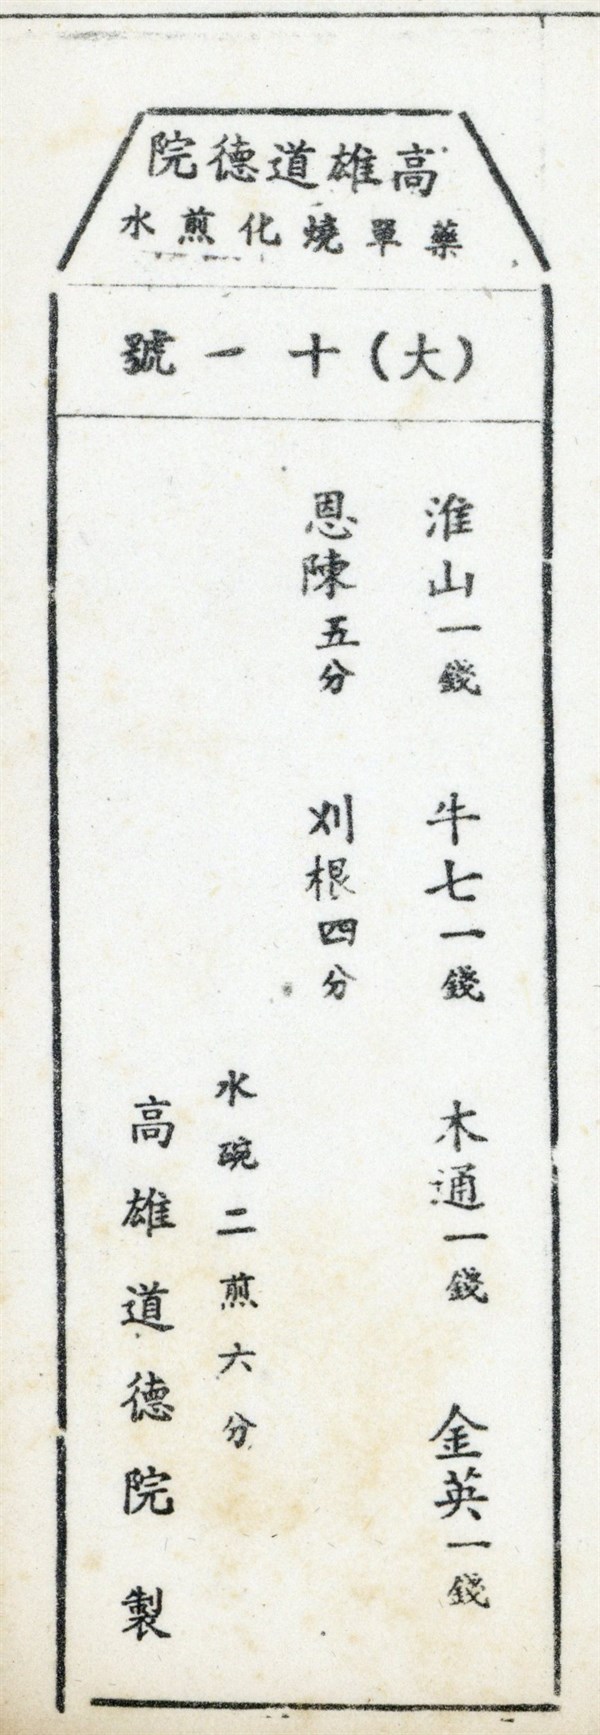 高雄道德院
藥單燒化煎水
(大)十一號
淮山一錢 牛七一錢 木通一錢 金英一錢
恩陳五分 刈根四分
水碗二煎六分
高雄道德院製